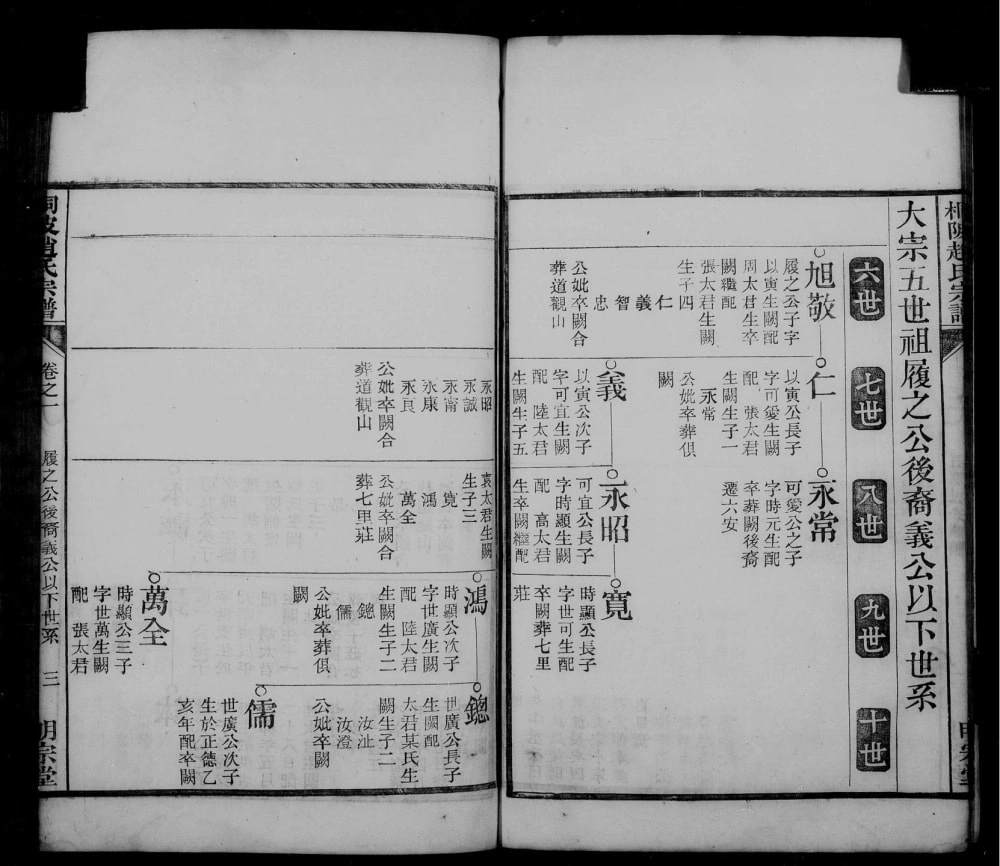 桐陂趙氏宗譜
大宗五世祖履之公後裔義公以下世系
六世
七世
八世
九世
十世
旭敬
履之公子字
以寅生闕配
周太君生卒
闕繼配
張太君生闕
生子四
仁
義
智
忠
公妣卒闕合
葬道觀山
仁
以寅公長子
字可愛生闕
配　張太君
生闕生子一
永常
公妣卒葬俱
闕
永常
可愛公之子
字時元生配
卒葬闕後裔
遷六安
義
以寅公次子
字可宜生闕
配　陸太君
生闕生子五
永昭
可宜公長子
字時顯生闕
配　高太君
生卒闕繼配
寬
時顯公長子
字世可生配
卒闕葬七里
莊
明宗堂
永昭
永誠
永甯
永康
永良
公妣卒闕合
葬道觀山
袁太君生闕
生子三
寬
鴻
萬全
公妣卒闕合
葬七里莊
鴻
時顯公次子
字世廣生闕
配　陸太君
生闕生子二
鎴
儒
公妣卒葬俱
闕
鎴
世廣公長子
生闕配
太君某氏生
闕生子二
汝沚
汝澄
公妣卒闕
儒
世廣公次子
生於正德乙
亥年配卒闕
萬全
時顯公三子
字世萬生闕
配　張太君
桐陂趙氏宗譜
卷之一
履之公後裔義公以下世系
三
明宗堂